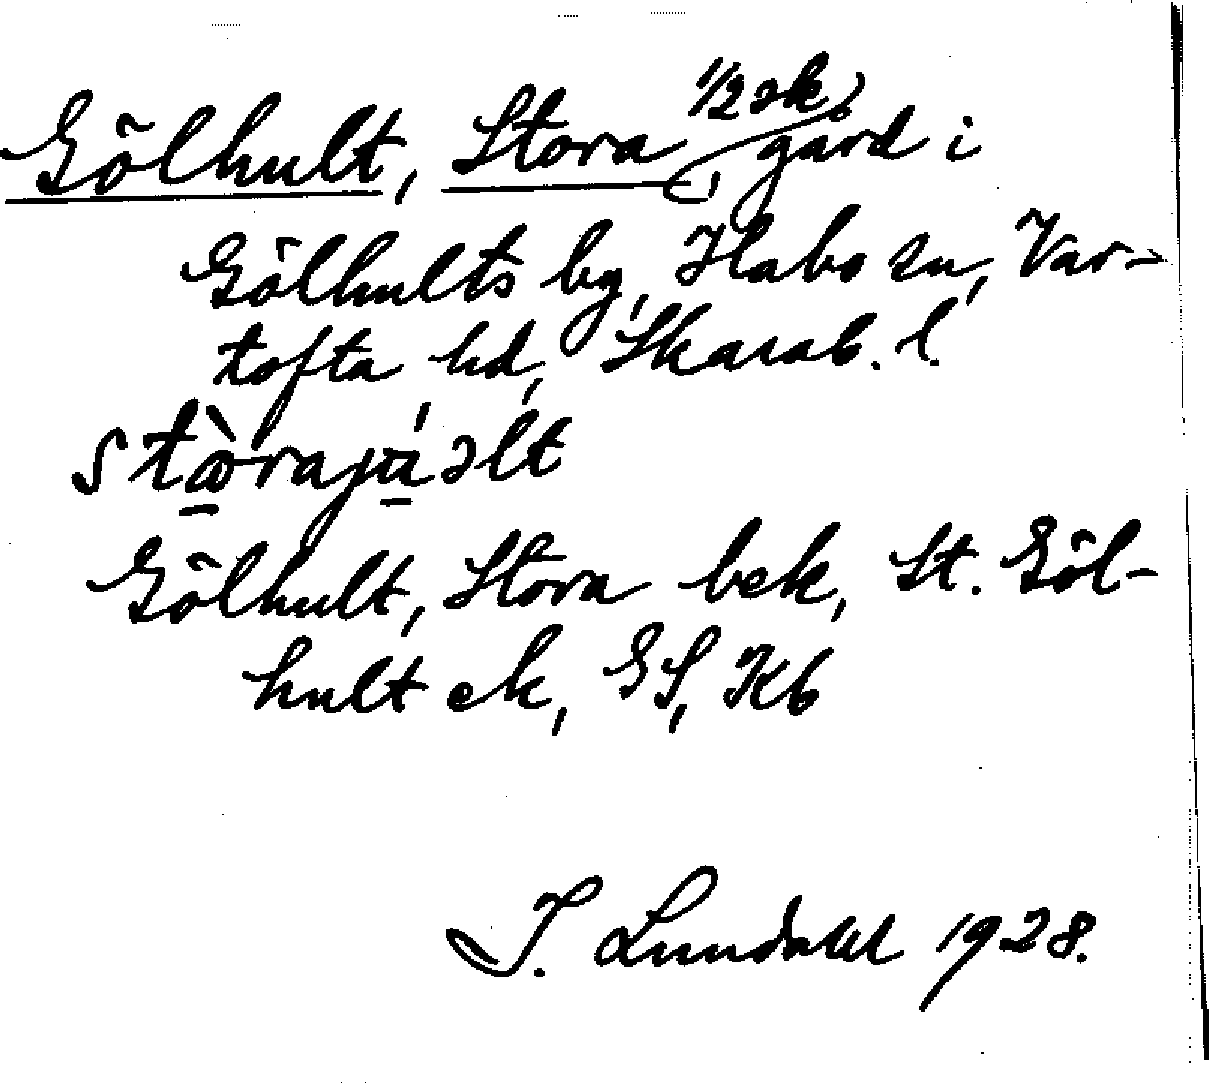 Gölhult, Stora 1/2 sk, gård i
Gölhults by, Habo sn, Var-
tofta hd, Skarab. l.
Gölhult, Stora bek, St. Göl-
hult ek, GS, Kb
I. Lundahl 1928.